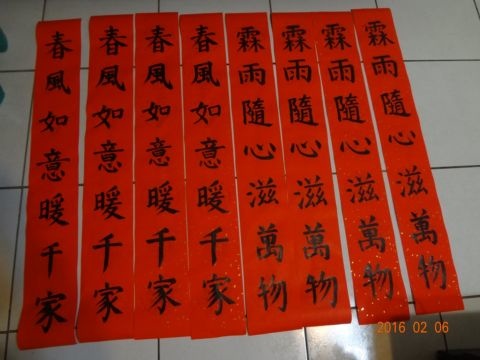 春風如意暖千家
春風如意暖千家
春風如意暖千家
春風如意暖千家
霖雨隨心滋萬物
霖雨隨心滋萬物
霖雨隨心滋萬物
霖雨隨心滋萬物
2016 02 06